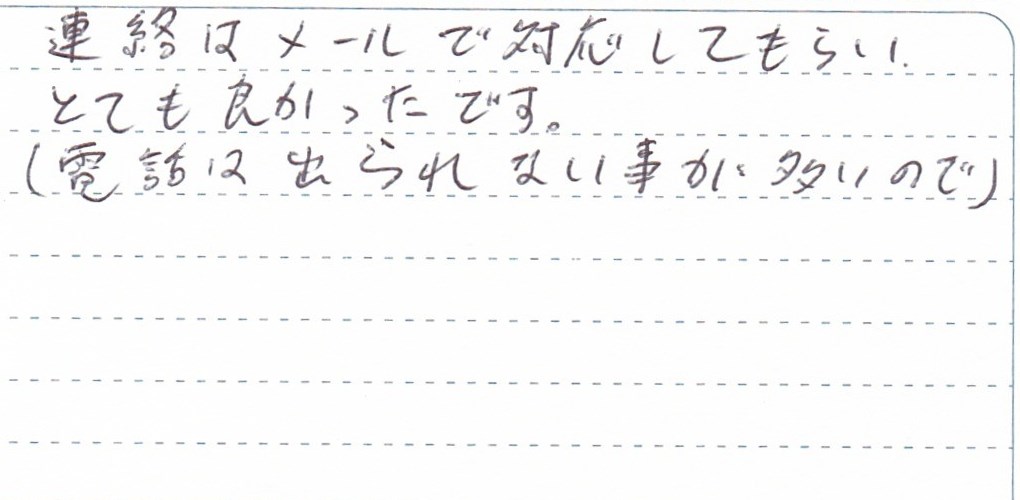 連絡はメールで対応してもらい.
とても良かったです。
(電話は出られない事が多いので)